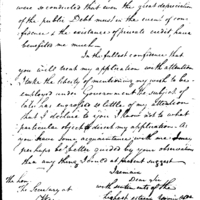 were so conducted that even the great depreciation
of the public Debt must in the event of con-
fidence & the existence of private credit have
benefited me much.
In the fullest confidence that
you will treat my application with attention
I take the liberty of mentioning my wish to be
employed under Government The subject of
late has engrossed so little of my attention
that I declare to you I know not to what
particular object to direct my application. As
you have some acquaintance with me I can
perhaps be better guided by your observation
than any thing I could at present suggest
I remain
Dear Sir
with sentiments of the
highest esteem
the hon.
The Secretary at